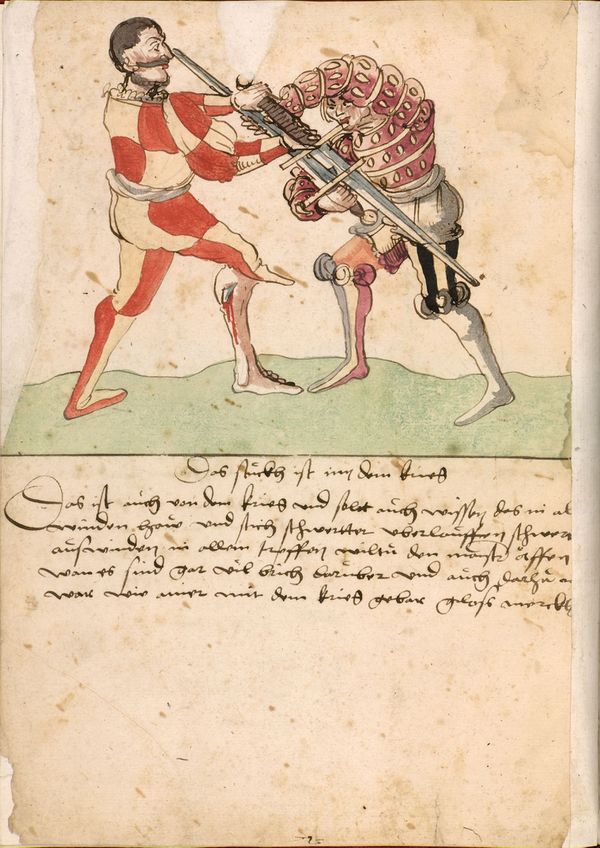 Das stuckh ist im dem krieg
Das ist auch von dem krieg und solt auch wissen das in al
winden haw und stich schwertter uberlauffen schwert
auswinden in allem treffen wiltu den maistr äffen
wan es sind gar vil bruch daruber und auch darzu
war wie ainer mit dem krieg gebar gloss merckh